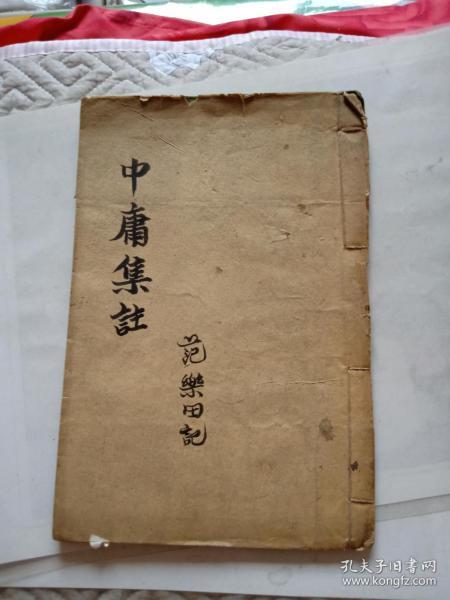 中庸集註
范樂田記
孔夫子旧书网
www.kongfz.com